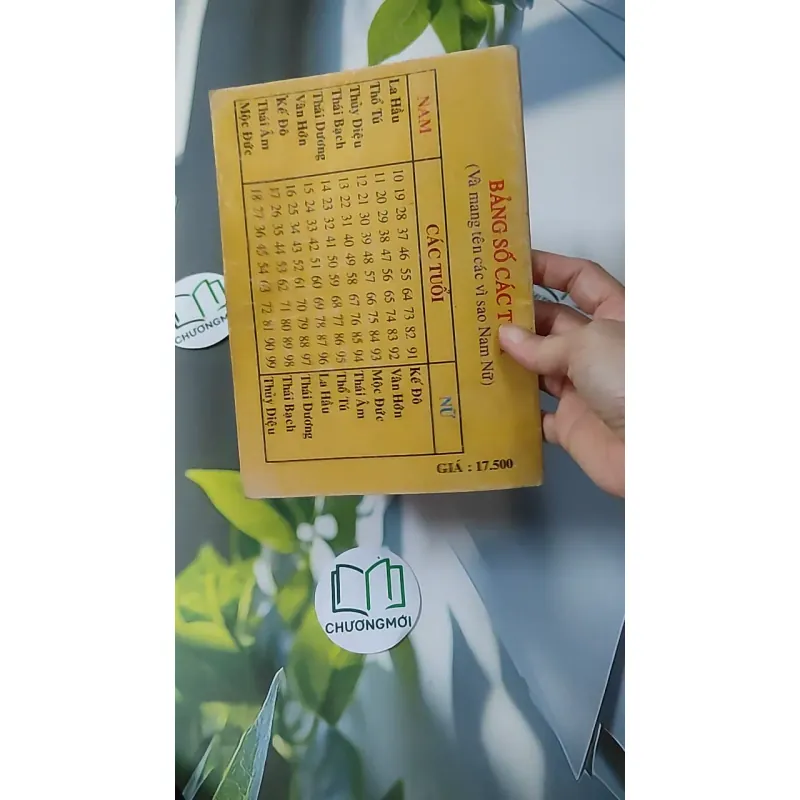 BẢNG SỐ CÁC
(Và mang tên các vì sao Nam Nữ)
NAM CÁC TUỔI NỮ
La Hầu 10 19 28 37 46 55 64 73 82 91 Kế Đô
Thổ Tú 11 20 29 38 47 56 65 74 83 92 Vân Hớn
Thủy Diệu 12 21 30 39 48 57 66 75 84 93 Mộc Đức
Thái Bạch 13 22 31 40 49 58 67 76 85 94 Thái Âm
Thái Dương 14 23 32 41 50 59 68 77 86 95 Thổ Tú
Vân Hớn 15 24 33 42 51 60 69 78 87 96 La Hầu
Kế Đô 16 25 34 43 52 61 70 79 88 97 Thái Dương
Thái Âm 17 26 35 44 53 62 71 80 89 98 Thái Bạch
Mộc Đức 18 27 36 45 54 63 72 81 90 99 Thủy Diệu
GIÁ : 17.500
CHƯƠNGMỚI
CHƯƠNGMỚI